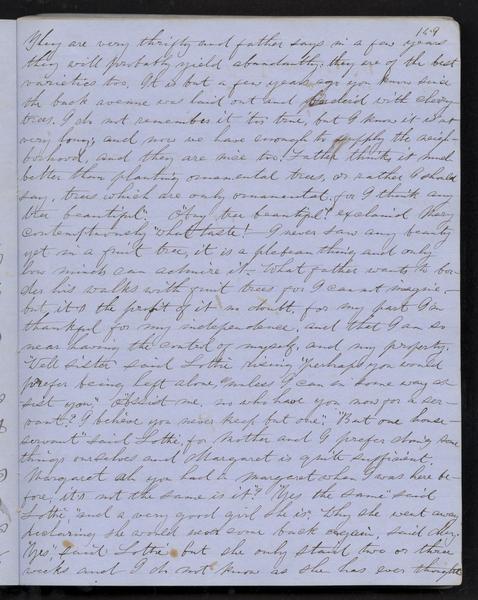 169
They are very thrifty and father says in a few years
they will probably yield abundantly, they are of the best
varieties too. It is but a few years ago you know since
the back avenue was laid out and with cherry
trees. I do not remember it tis true, but I know it is not
very long, and now we have enough to supply the neigh-
borhood, and they are nice too. Father thinks it much
better than planting ornamental trees, or rather I should
say, trees which are only ornamental, for I think any
tree beautiful". "Any tree beautiful" exclaimed Mary
contemptuously "what taste! I never saw any beauty
yet in a fruit tree, it is a plebean thing and only
low minds can admire it. What father wants to bor-
der his walks with fruit trees for I cannot imagine—
but it is the profit of it no doubt, for my part I am
thankful for my independence, and that I am so
near having the control of myself, and my property.
"Well sister" said Lottie rising "perhaps you would
prefer being left alone unless I can in some way as-
sist you". "Assist me, no who have you now for a ser-
vant? I believe you never keep but one". "But one house-
servant" said Lottie, for Mother and I prefer doing some
things ourselves and Margaret is quite sufficient.
Margaret ah you had a margaret when I was here be-
fore, it is not the same is it? "Yes the same" said
Lottie "and a very good girl she is". Why she went away
declaring she would never come back again, said Mary.
"Yes", said Lottie "but she only staid two or three
weeks and I do not know as she has ever thought